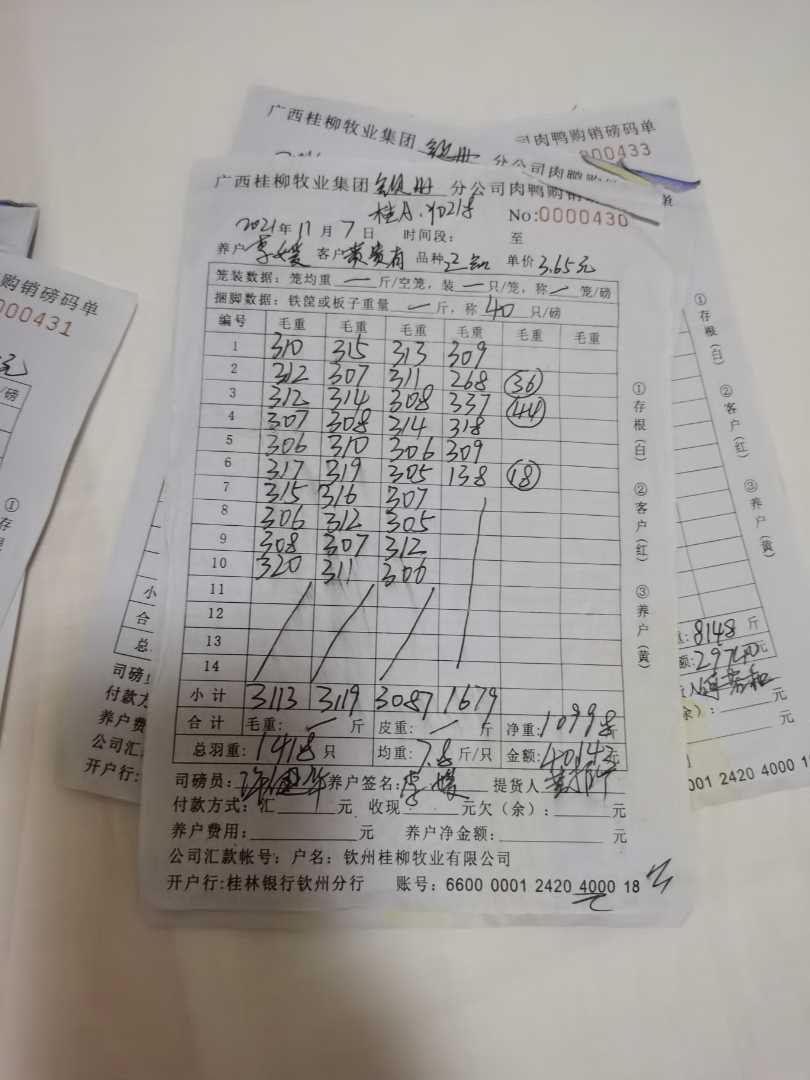 广西桂柳牧业集团
司肉鸭购销磅码单
000433
购销磅码单
000431
元
/磅
①
存
广西桂柳牧业集团 钦州 分公司肉鸭购销
桂A·Y0218 No:0000430
2021年 11 月 7 日 时间段: 至
养户 李媛 客户 黄贵有 品种 单价 3.65元
笼装数据: 笼均重 一 斤/空笼, 装 一 只/笼, 称 一 笼/磅
捆脚数据: 铁筐或板子重量 一 斤, 称 40 只/磅
编号 毛重 毛重 毛重 毛重 毛重 毛重
1 310 315 313 309
2 312 307 311 268 36
3 312 314 308 337 44
4 307 308 314 318
5 306 310 306 309
6 317 319 305 138 18
7 315 316 307
8 306 312 305
9 308 307 312
10 320 311 306
11
12
13
14
小计 3113 3119 3087 1679
合计 毛重: 一 斤 皮重: 一 斤 净重: 10998 斤
总羽重: 1418 只 均重: 7.8 斤/只 金额: 40143 元
司磅员: 养户签名: 李媛 提货人
付款方式: 汇 元 收现 元欠(余): 元
养户费用: 元 养户净金额: 元
公司汇款帐号: 户名: 钦州桂柳牧业有限公司
开户行:桂林银行钦州分行 账号: 6600 0001 2420 4000 18
①存根(白) ②客户(红) ③养户(黄)
①存根(白) ②客户(红) ③养户(黄)
8148 斤
额: 29740元
余): 元
元
001 2420 4000 1
小
合
总
司磅
付款方
养户费
公司汇
开户行: